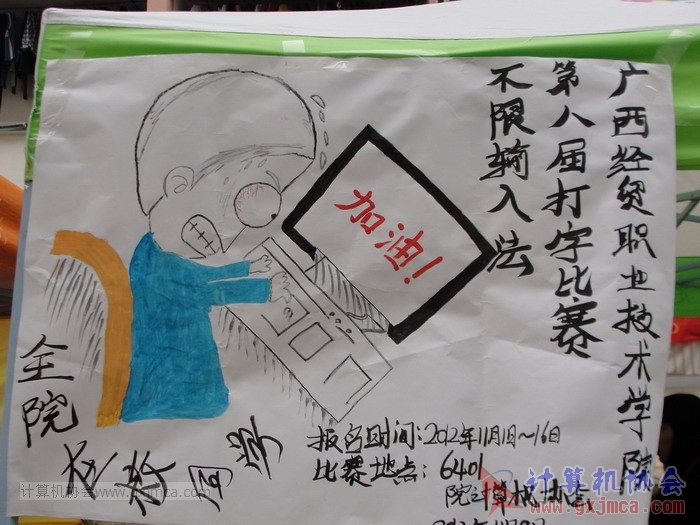 广西经贸职业技术学院
第八届打字比赛
不限输入法
加油!
全院
同学
报名时间:2012年11月1日~16日
比赛地点:6401
院计算机协会
计算机协会 www.gxjmca.com
计算机协会
www.gxjmca.com